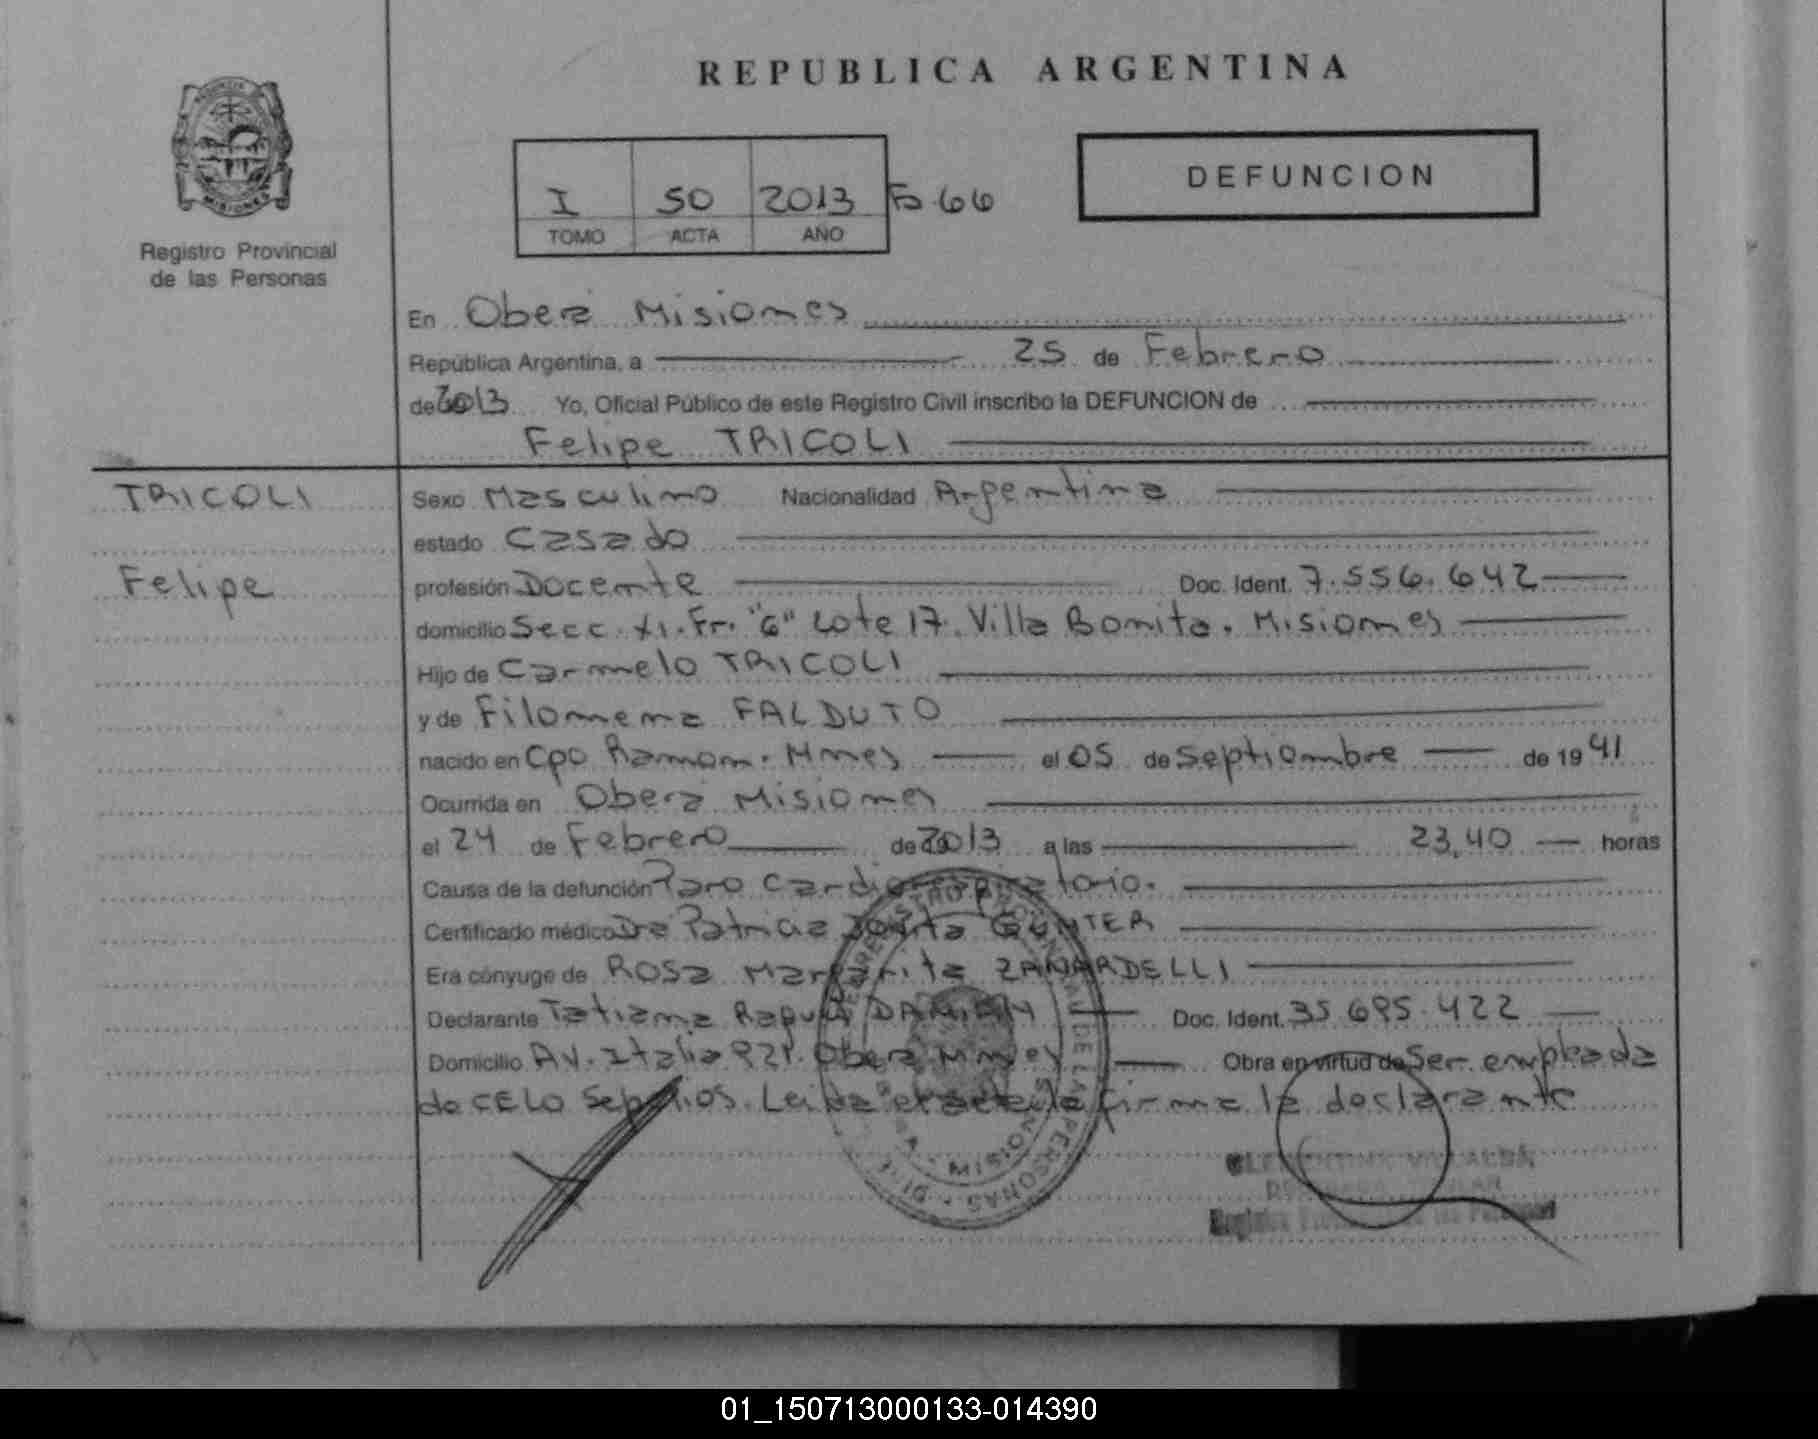 REPUBLICA ARGENTINA
DEFUNCION
I 50 2013 Fo 66
TOMO ACTA AÑO
Registro Provincial
de las Personas
En Oberá Misiones
República Argentina, a 25 de Febrero
de 2013 Yo, Oficial Público de este Registro Civil inscribo la DEFUNCION de
Felipe TRICOLI
TRICOLI
Felipe
Sexo Masculino Nacionalidad Argentina
estado Casado
profesión Docente Doc. Ident. 7.556.642
domicilio Secc. XI. Fr. "G" Lote 17. Villa Bonita. Misiones
Hijo de Carmelo TRICOLI
y de Filomena FALDUTO
nacido en Cpo Ramon. Mnes el 05 de Septiembre de 1941
Ocurrida en Oberá Misiones
el 24 de Febrero de 2013 a las 23,40 horas
Causa de la defunción Paro cardiorespiratorio.
Certificado médico Dra Patricia GUNTER
Era cónyuge de Rosa Margarita ZANARDELLI
Declarante Tatiana Raquel Doc. Ident. 35.695.422
Domicilio Av. Italia 921. Oberá Mnes Obra en virtud de Ser empleada
de CELO Sepelios. Leida el acta la firma la declarante
MISIONES
CLEMENTINA VILLALBA
Registro Provincial de las Personas
01_150713000133-014390